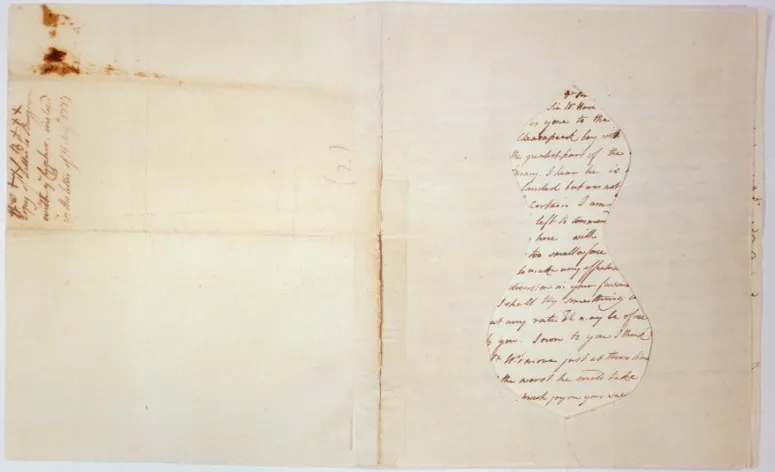 copy of
with y.e Cypher, inclosed
in the letter of
(2)
Sr W. Howe
is gone to the
Chesapeak bay with
the greatest part of the
army. I hear he is
landed but am not
certain. I am
left to command
here with
too small a force
to make any effectual
diversion in your favour
I shall try something
at any rate. It may be of use
to you. I own to you I think
Sr W's move just at this time
the worst he could take
much joy on your